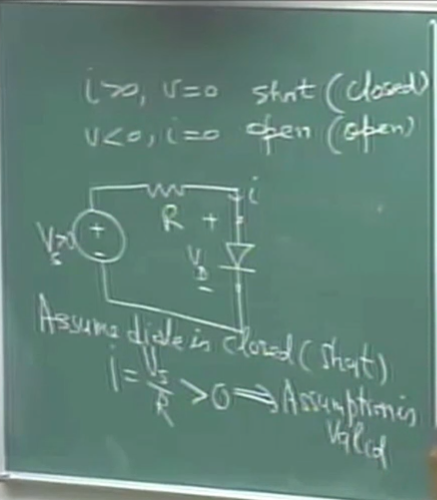 i>0, v=0 short (closed)
v<0, i=0 open (open)
i
R +
+
V_s>0
-
V_D
-
Assume diode is closed (short)
i = V_s/R > 0 ⟹ Assumption is
Valid